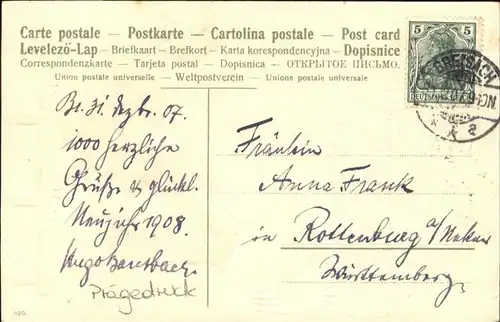 Carte postale – Postkarte – Cartolina postale – Post card
Levelező-Lap – Briefkaart – Brefkort – Karta korespondencyjna – Dopisnice
Correspondenzkarte – Tarjeta postal – Dopisnica – ОТКРЫТОЕ ПИСЬМО.
Union postale universelle – Weltpostverein – Unione postale universale
5 5
DEUTSCHES
BREISACH
Br. 31. Dezbr. 07.
1000 herzliche
Grüße & glückl.
Neujahr 1908.
Hugo
Prägedruck
Fräulein
Anna Frank
in Rottenburg a/Neckar
Württemberg.